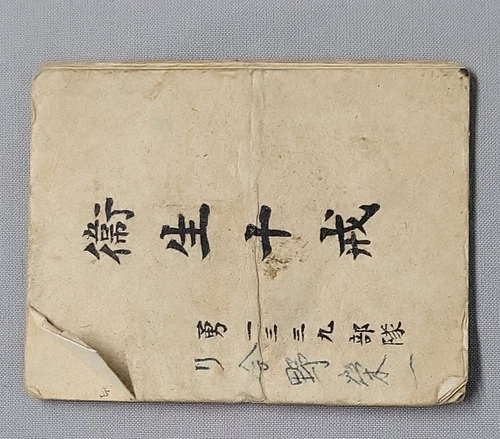 衛生十戒
勇一三三九部隊
リ今野栄一